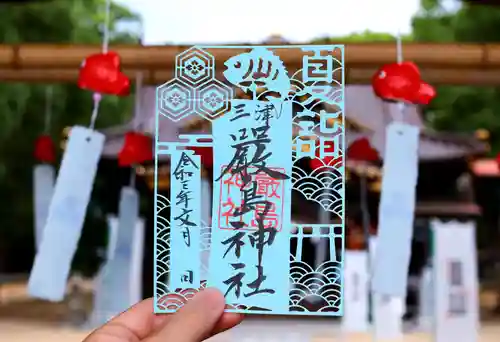 夏詣
三津
嚴島神社
厳島
神社
令和三年文月 日